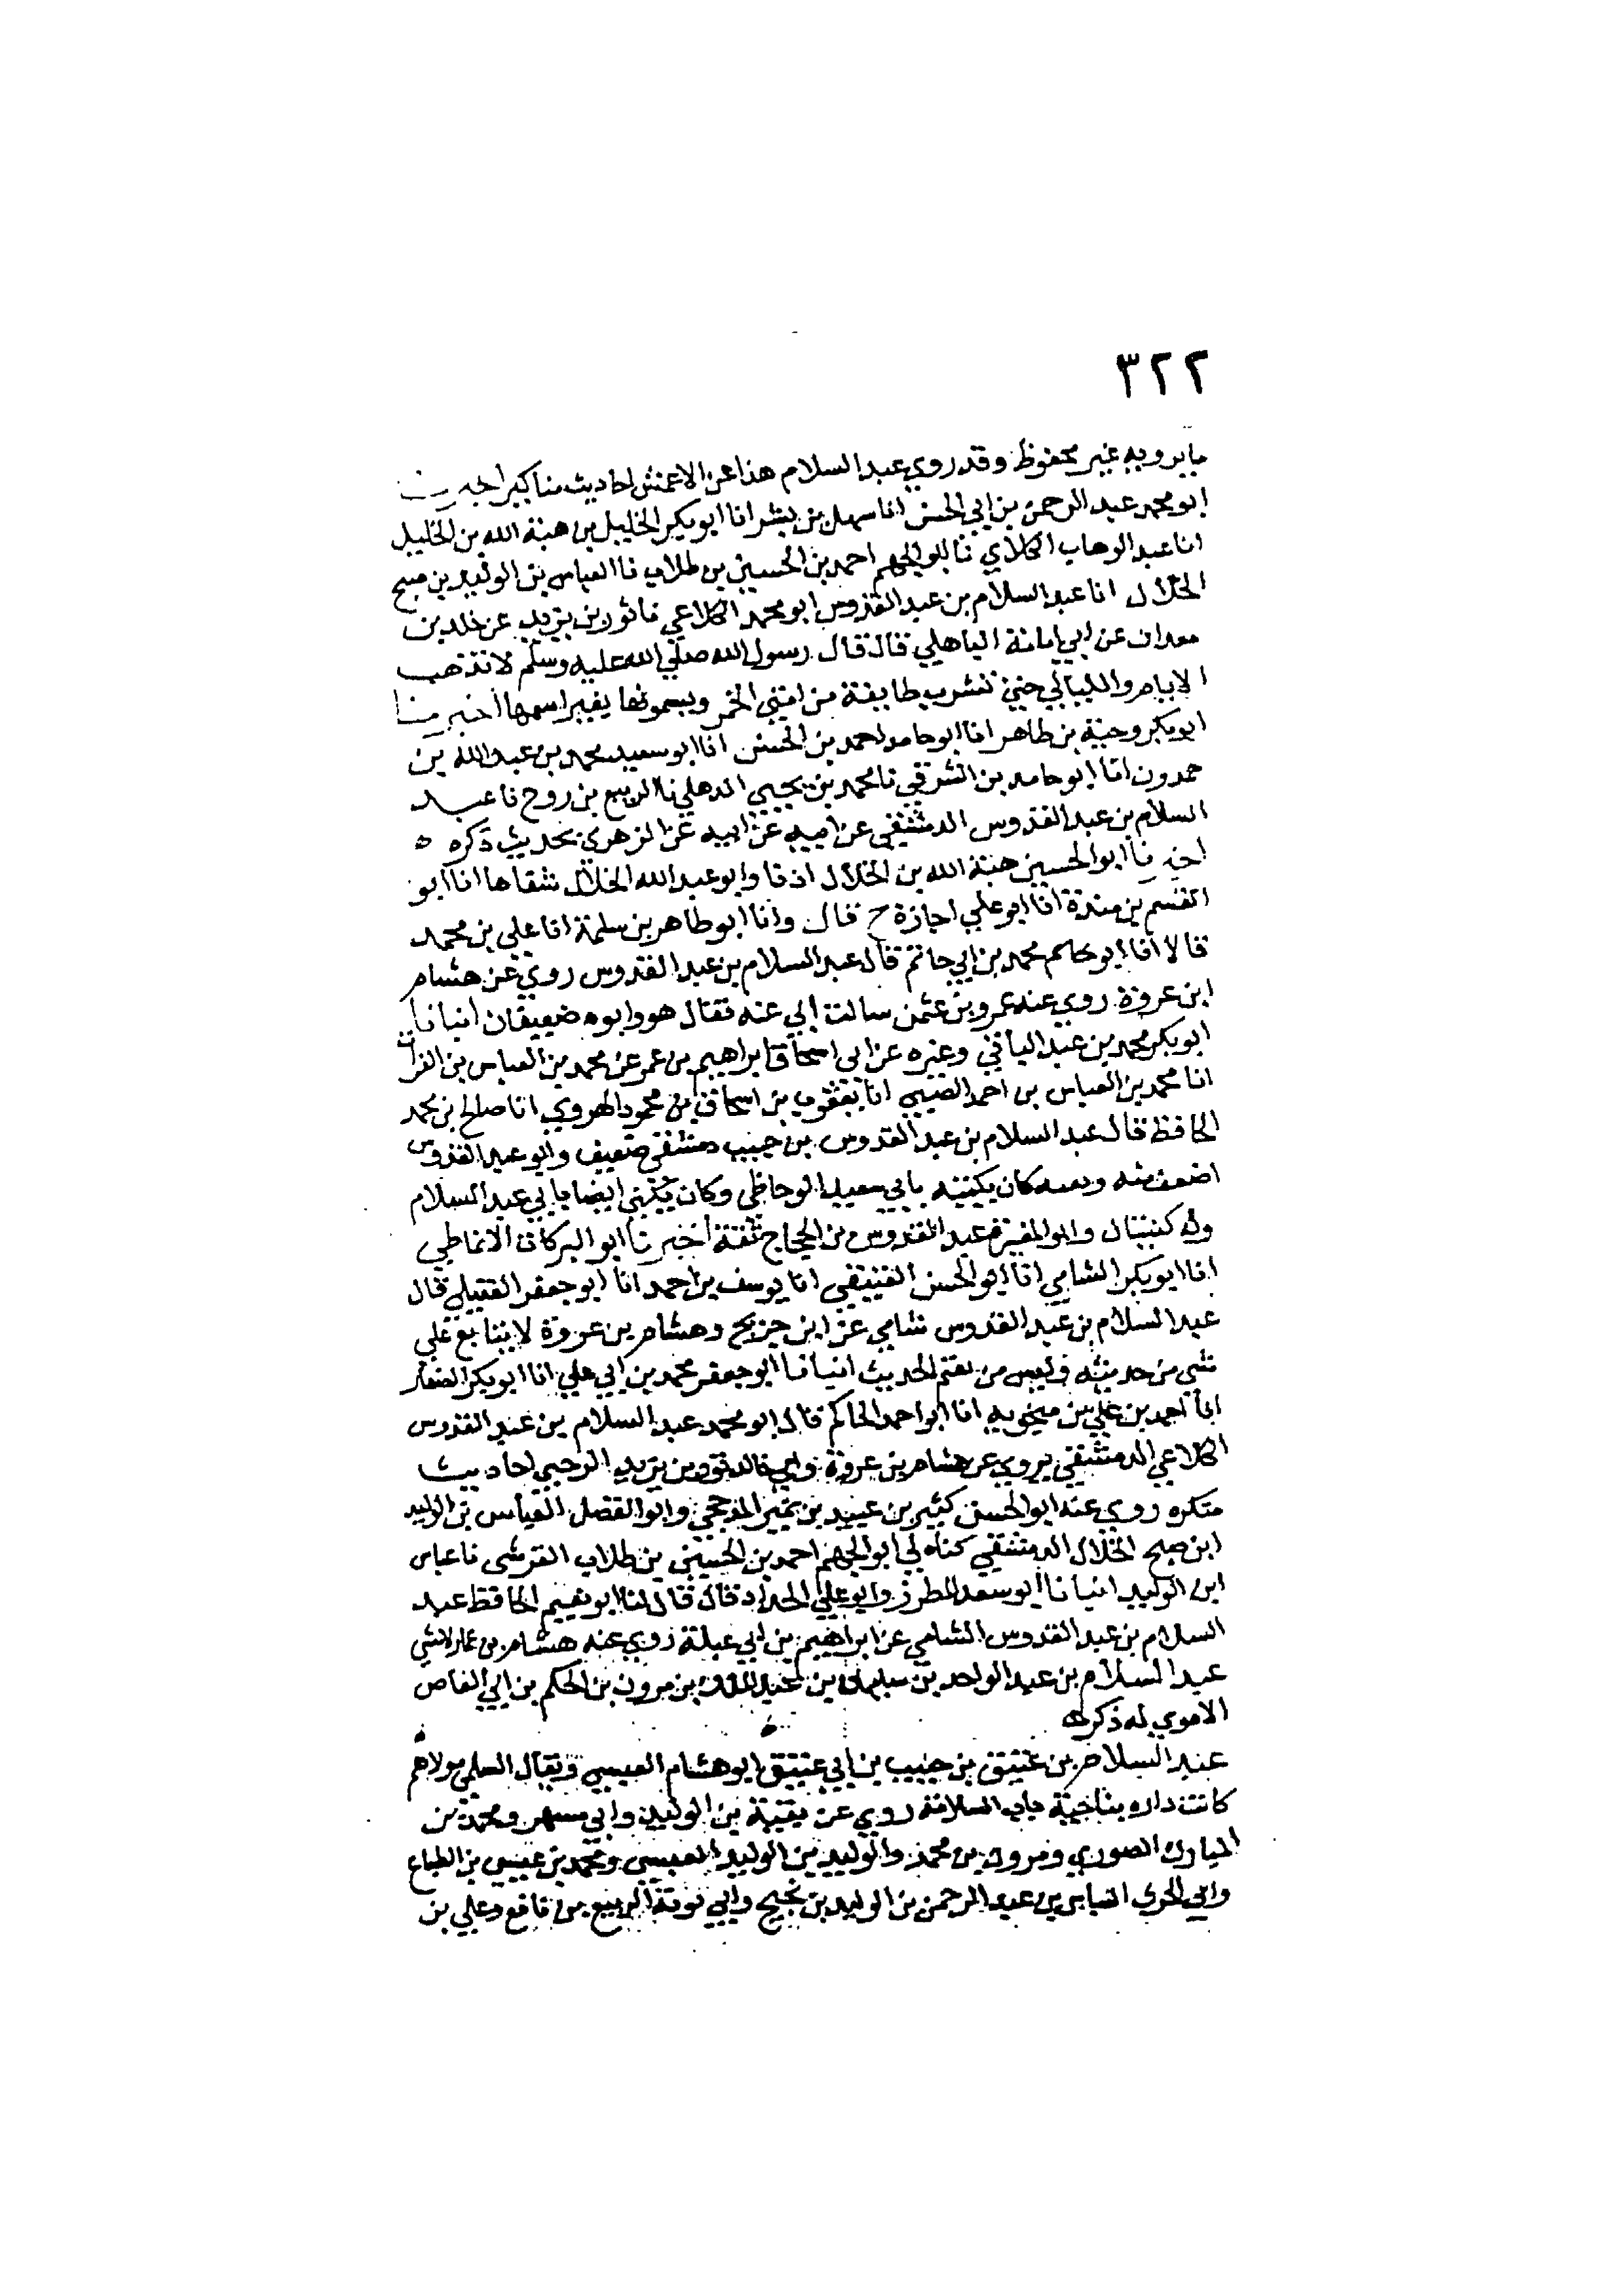 ٣٢٢
ما يرويه غير محفوظ وقد روي عبد السلام هذا عن الاعمش احاديث مناكير اخبرنا
ابو محمد عبد الرحمن بن ابي الحسن انا سهل بن بشر انا ابو بكر الخليل بن هبة الله بن الخليل
انا عبد الوهاب الكلابي نا ابو الجهم احمد بن الحسين بن طلاب نا العباس بن الوليد بن صبح
الخلال انا عبد السلام بن عبد القدوس ابو محمد الكلاعي نا ثور بن يزيد عن خلد بن
معدان عن ابي امامة الباهلي قال قال رسول الله صلي الله عليه وسلم لا تذهب
الايام والليالي حتي تشرب طايفة من امتي الخمر ويسمونها بغير اسمها اخبرنا
ابو بكر وجيه بن طاهر انا ابو حامد احمد بن الحسن انا ابو سعيد محمد بن عبد الله بن
حمدون انا ابو حامد بن الشرقي نا محمد بن يحيي الذهلي نا الربيع بن روح نا عبد
السلام بن عبد القدوس الدمشقي عن ابيه عن ابيه عن الزهري بحديث ذكره ه
اخبرنا ابو الحسين هبة الله بن الخلال اذنا وابو عبد الله الخلال شفاها انا ابو
القسم بن مندة انا ابو علي اجازة ح قال وانا ابو طاهر بن سلمة انا علي بن محمد
قالا انا ابو حاتم محمد بن ابي حاتم قال عبد السلام بن عبد القدوس روي عن هشام
ابن عروة روي عنه عمرو بن عثمن سالت ابي عنه فقال هو وابوه ضعيفان انبانا
ابو بكر محمد بن عبد الباقي وغيره عن ابي اسحاق ابراهيم بن عمر عن محمد بن العباس بن الفرات
انا محمد بن العباس بن احمد الضبي انا يعقوب بن اسحاق بن محمود الهروي انا صالح بن محمد
الحافظ قال عبد السلام بن عبد القدوس بن حبيب دمشقي ضعيف وابو عبد القدوس
اضعف منه وبعضه كان يكنيه بابي سعيد الوحاظي وكان يكني ايضا بابي عبد السلام
وله كنيتان وابو المغيرة عبد القدوس بن الحجاج ثقة اخبرنا ابو البركات الانماطي
انا ابو بكر الشامي انا ابو الحسن العتيقي انا يوسف بن احمد انا ابو جعفر العقيلي قال
عبد السلام بن عبد القدوس شامي عن ابن جريج وهشام بن عروة لا يتابع علي
شي من حديثه وليس من يقيم الحديث انبانا ابو جعفر محمد بن ابي علي انا ابو بكر الصفار
انا احمد بن علي بن منجويه انا ابو احمد الحاكم قال ابو محمد عبد السلام بن عبد القدوس
الكلاعي الدمشقي يروي عن هشام بن عروة وابي خالد ثور بن يزيد الرحبي احاديث
منكره روي عنه ابو الحسن كثير بن عبيد بن نمير المذحجي وابو الفضل العباس بن الوليد
ابن صبح الخلال الدمشقي كناه لي ابو الجهم احمد بن الحسين بن طلاب القرشي نا عباس
ابن الوليد انبانا ابو سعد المطرز وابو علي الحداد قال قال لنا ابو نعيم الحافظ عبد
السلام بن عبد القدوس الشامي عن ابراهيم بن ابي عبلة روي عنه هشام بن عمار لا شي
عبد السلام بن عبد الواحد بن سليمان بن عبد الملك بن مرون بن الحكم بن ابي العاص
الاموي له ذكر ه
عبد السلام بن عتيق بن حبيب بن ابي عتيق ابو هشام العبسي ويقال السلمي مولاهم
كانت داره بناحية باب السلامة روي عن بقية بن الوليد وابي مسهر ومحمد بن
المبارك الصوري ومرون بن محمد والوليد بن الوليد العبسي ومحمد بن عيسي بن الطباع
وابي الحرث العباس بن عبد الرحمن بن الوليد بن نجيح وابي توبة الربيع بن نافع وعلي بن